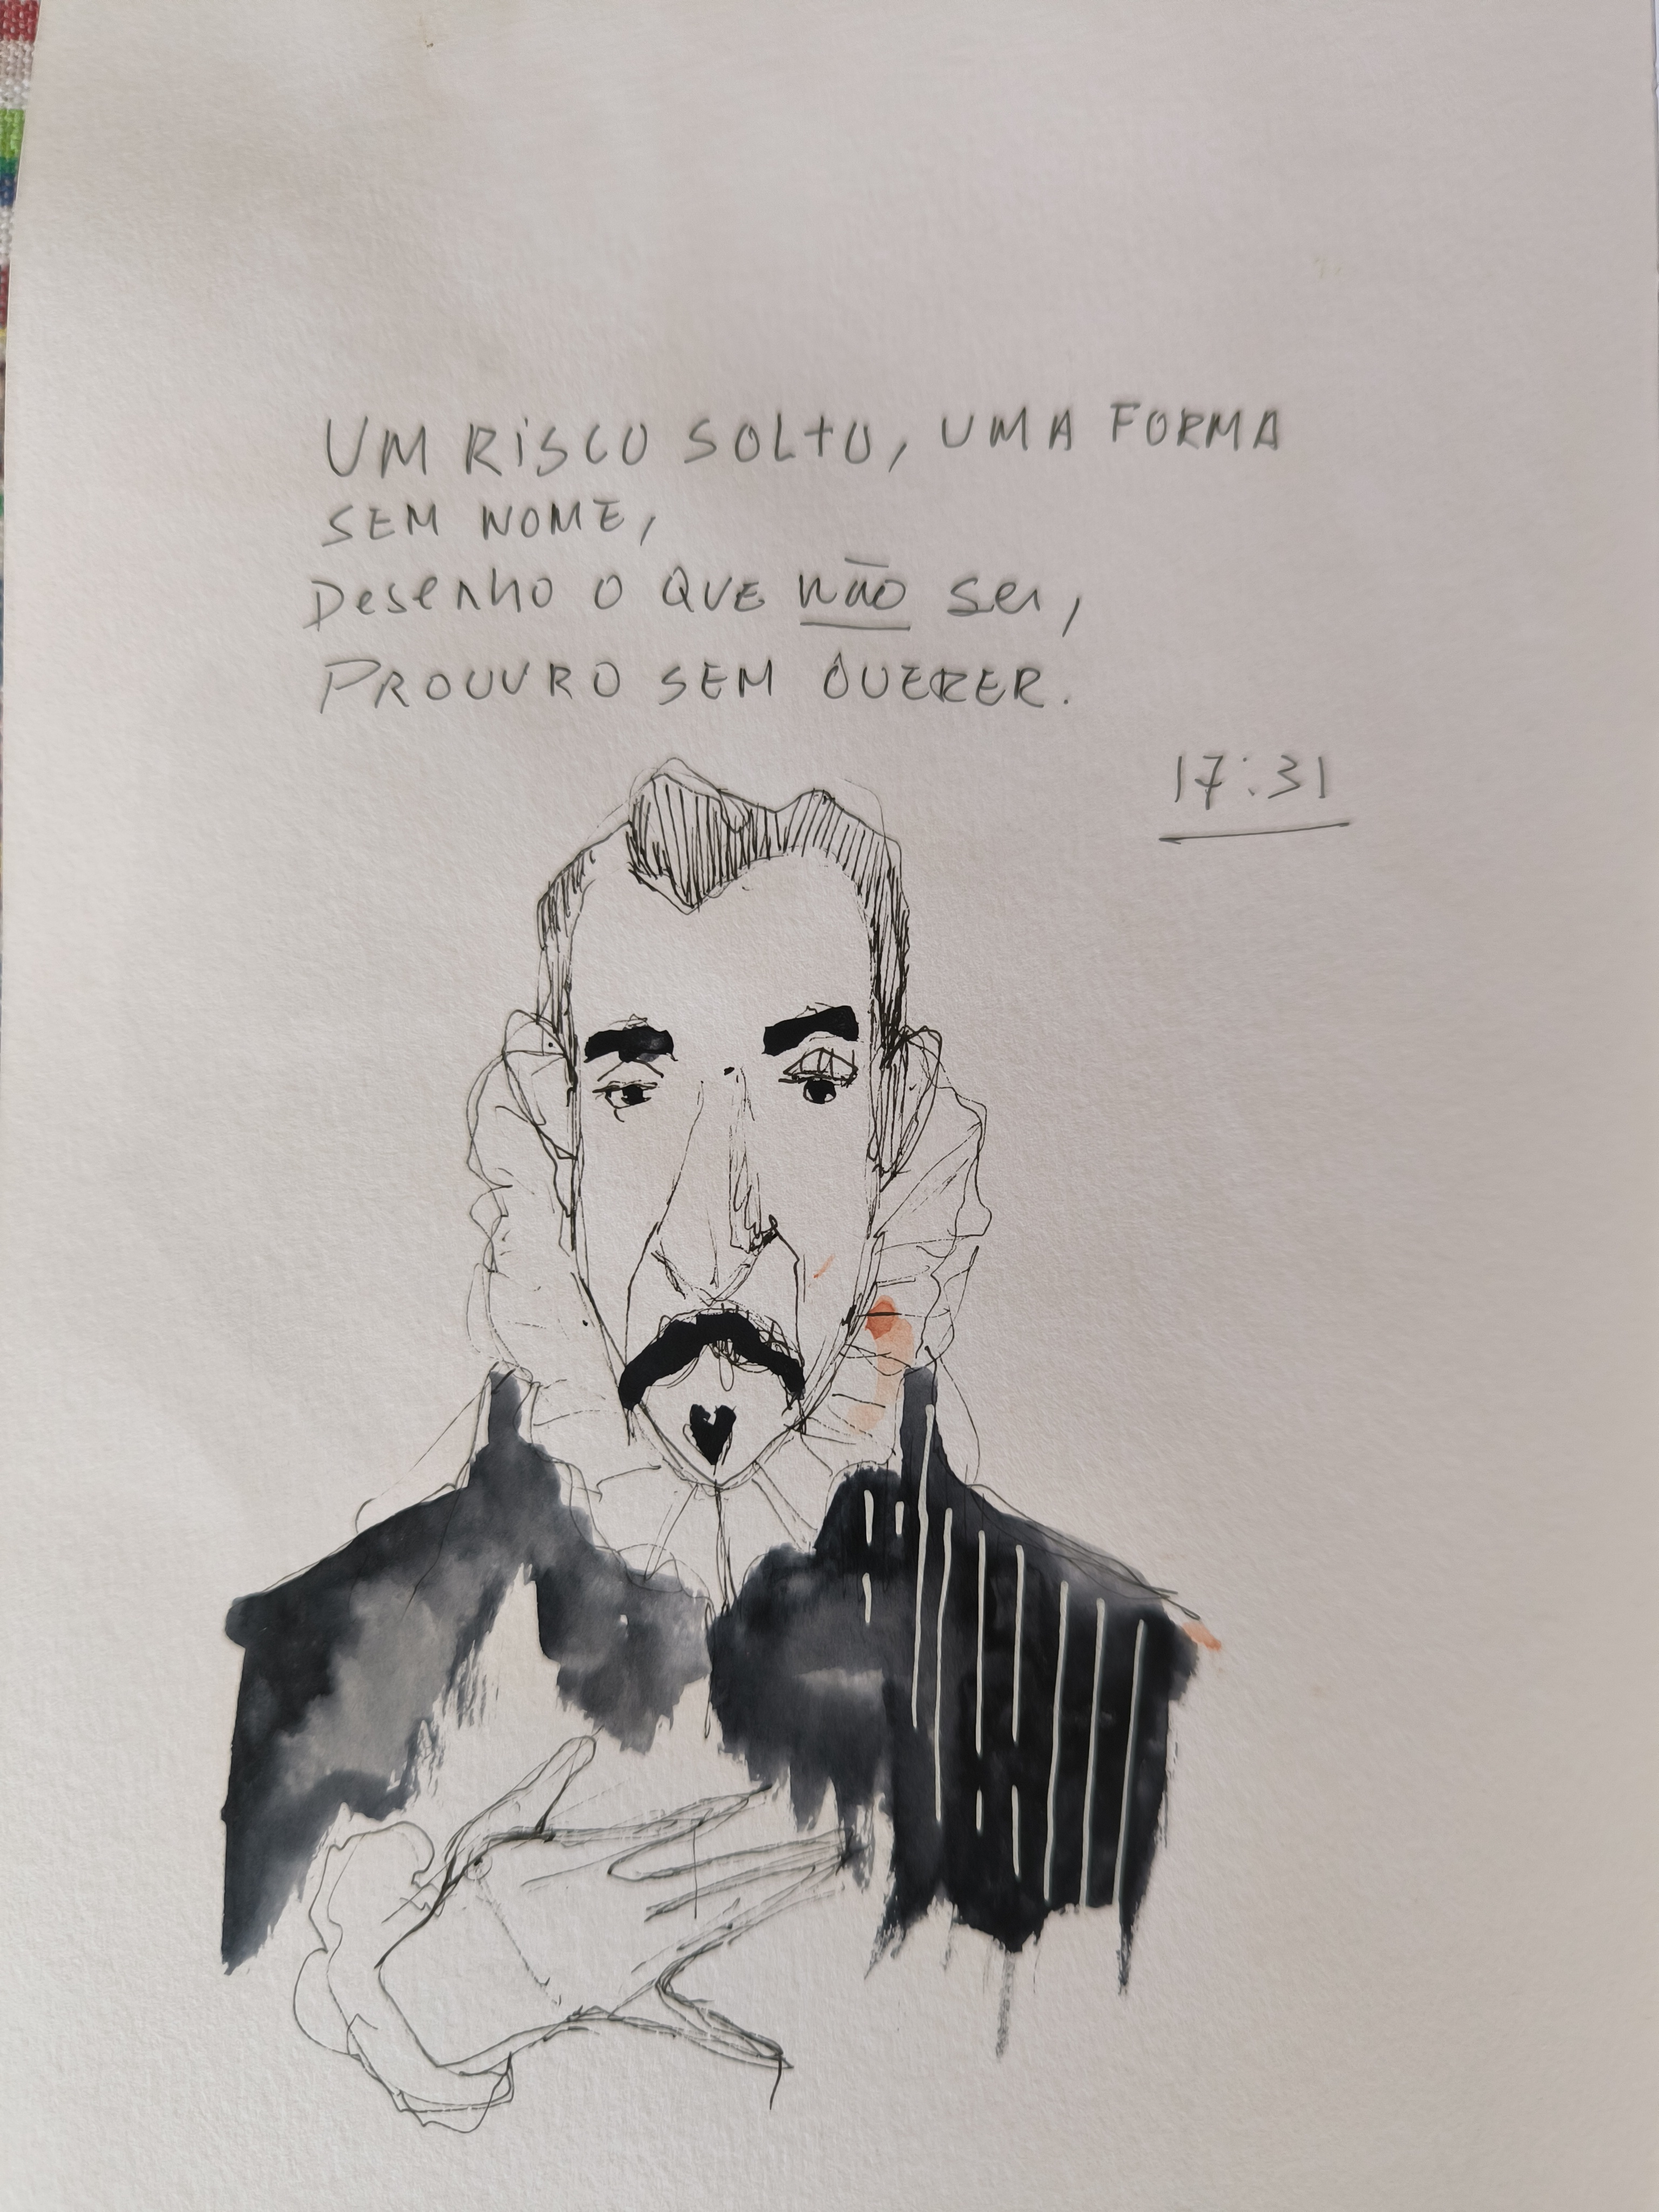 UM RISCO SOLTO, UMA FORMA
SEM NOME,
Desenho o QUE não sei,
PROCURO SEM QUERER.
17:31